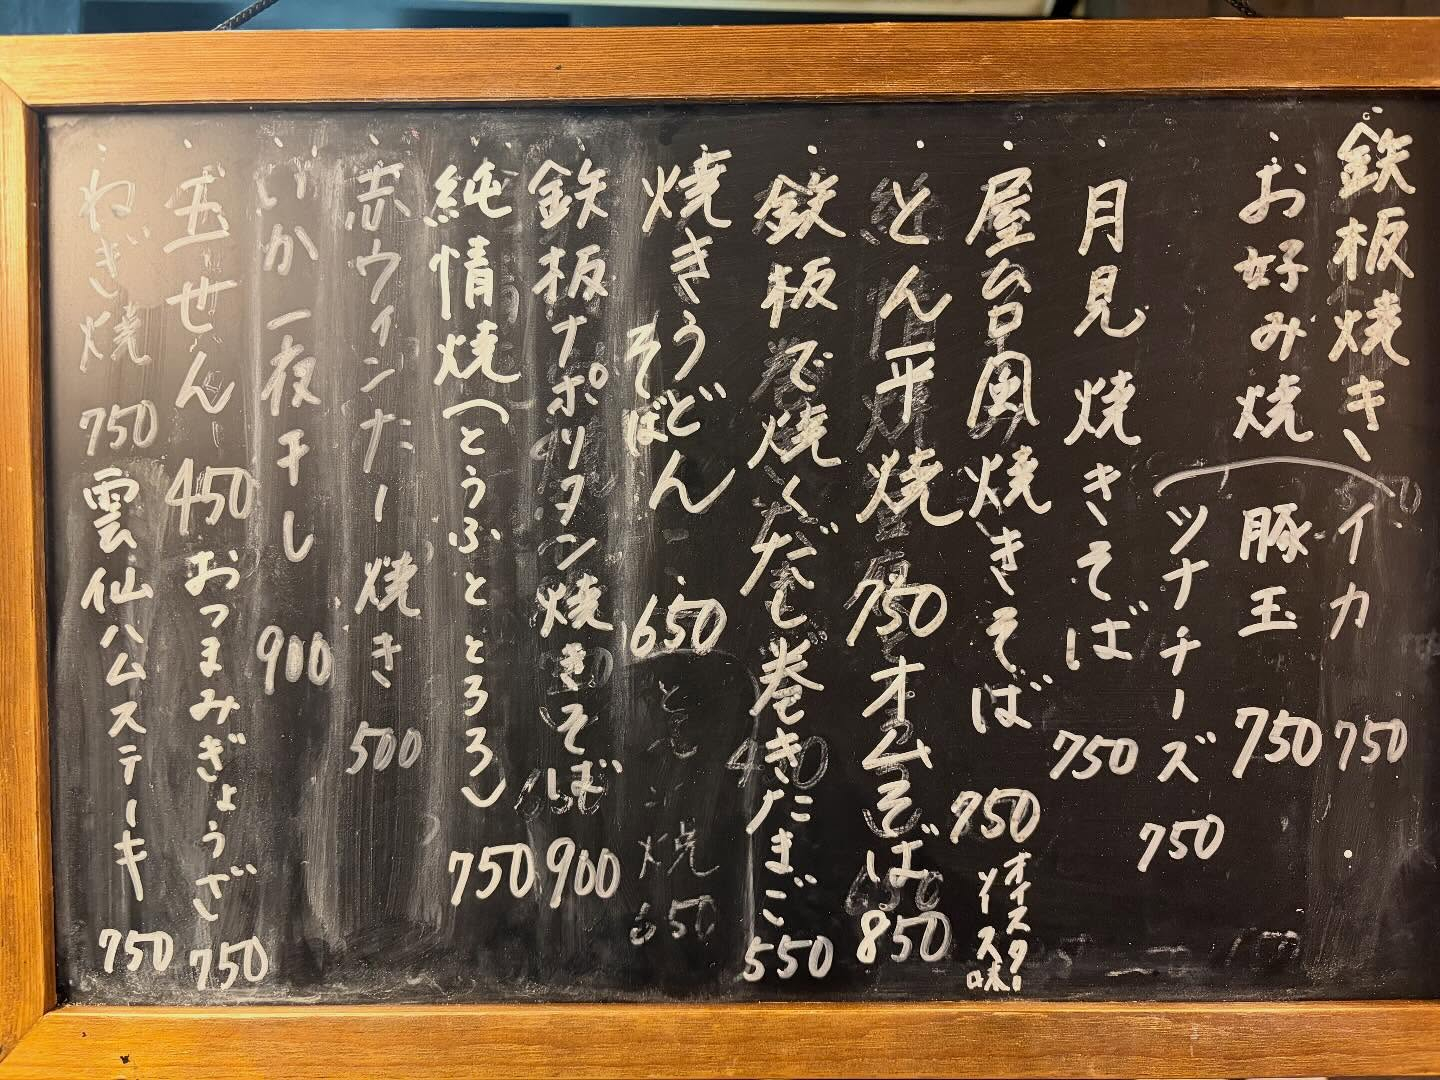 ・鉄板焼き
イカ 750
・お好み焼
豚玉 750
ツナチーズ 750
・月見焼きそば 750
・屋台風焼きそば 750
オイスターソース味
・とん平焼 750
オムそば 850
・鉄板で焼くだし巻きたまご 550
・焼きうどん 650
そば
・鉄板ナポリタン焼きそば 900
・純情焼(とうふととろろ) 750
・赤ウィンナー焼き 500
・いか一夜干し 900
・玉せん 450
おつまみぎょうざ 750
・ねぎ焼 750
雲仙ハムステーキ 750